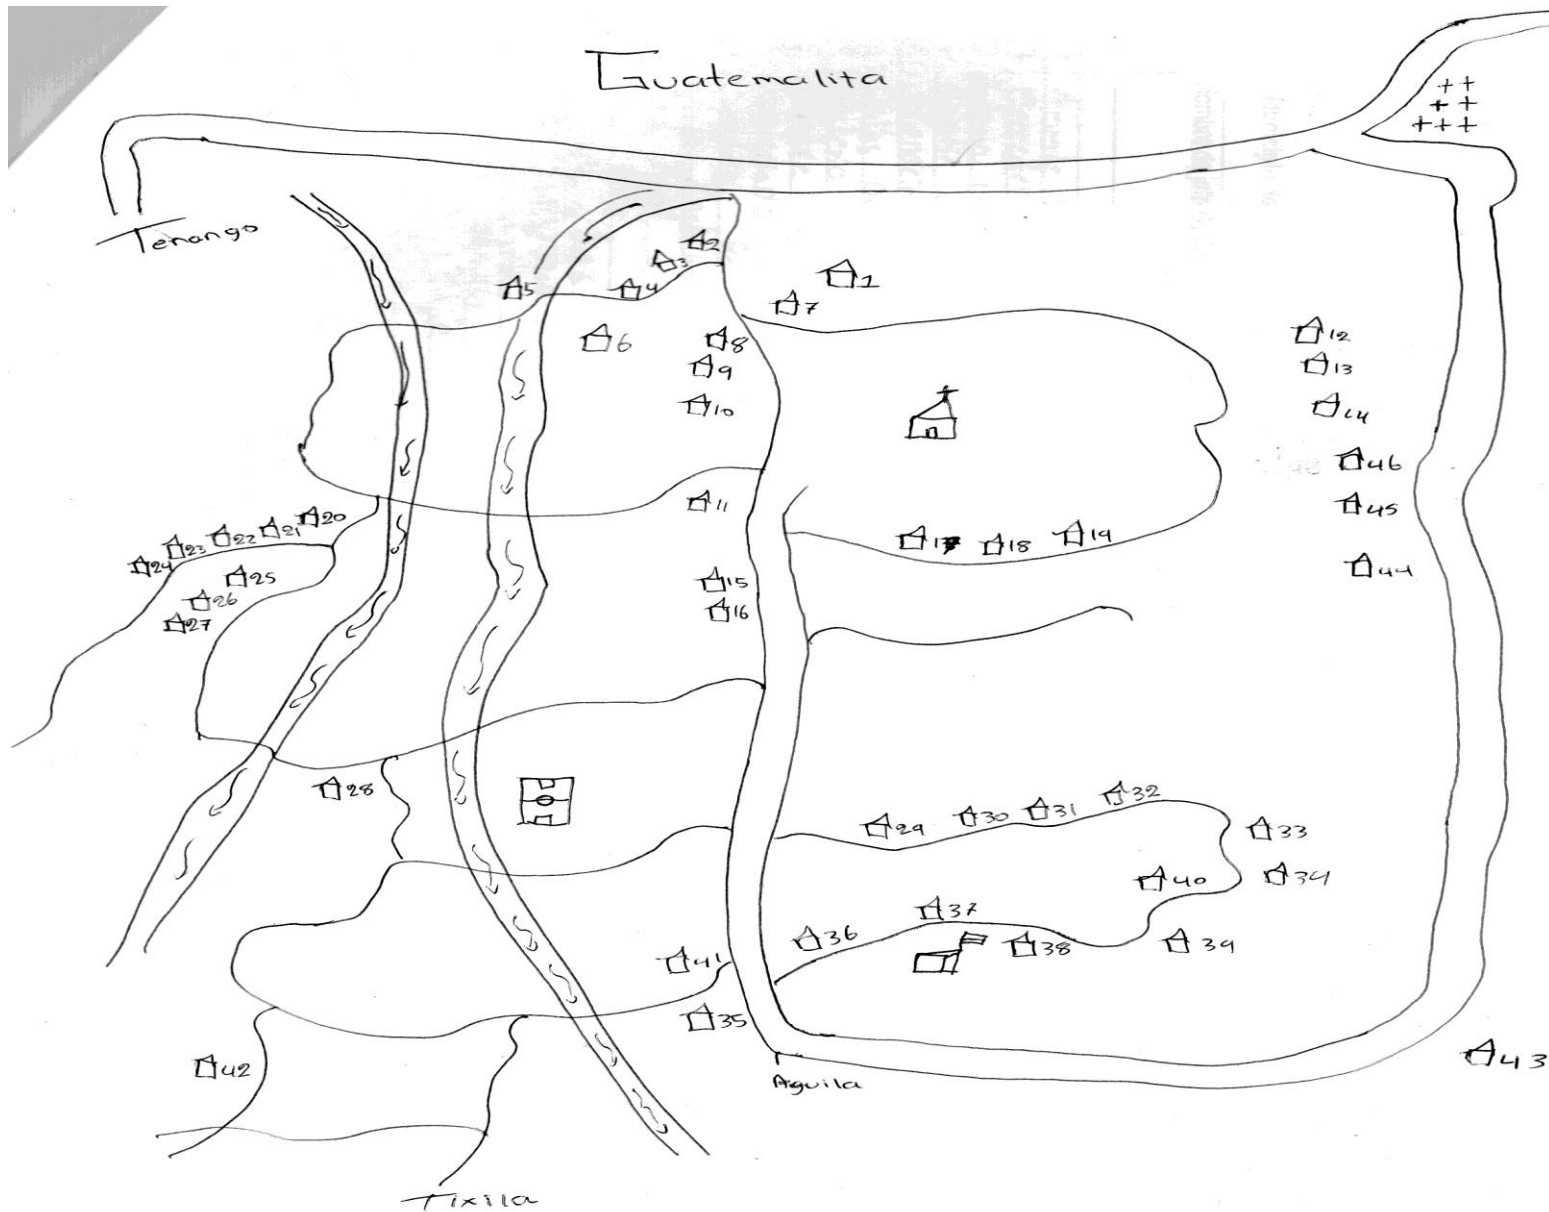 Guatemalita
Tenango
2
3
4
5
1
7
6
8
9
10
12
13
14
46
45
44
11
17
18
19
20
21
22
23
24
25
26
27
15
16
28
29
30
31
32
33
34
40
37
36
38
39
41
35
42
43
Aguila
Tixila